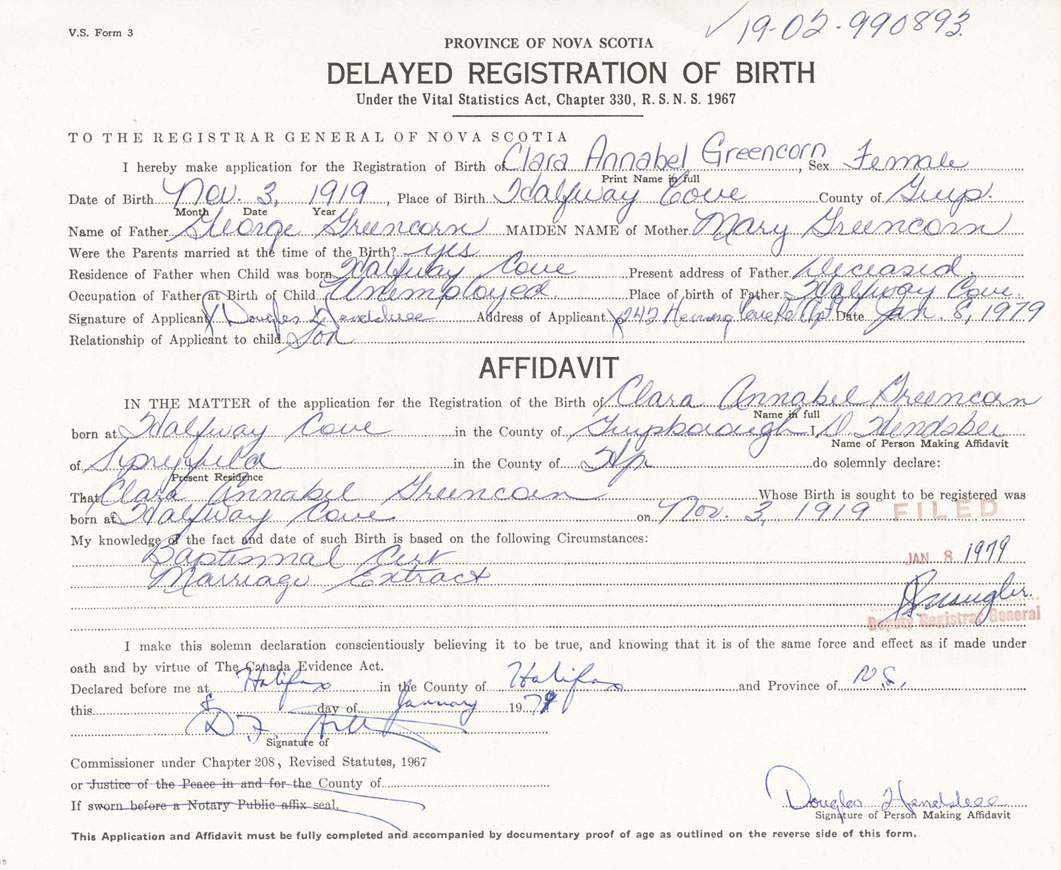 V.S. Form 3
✓ 19-02-990893
PROVINCE OF NOVA SCOTIA
DELAYED REGISTRATION OF BIRTH
Under the Vital Statistics Act, Chapter 330, R.S.N.S. 1967
TO THE REGISTRAR GENERAL OF NOVA SCOTIA
I hereby make application for the Registration of Birth of Clara Annabel Greencorn, Sex Female
Print Name in full
Date of Birth Nov. 3, 1919, Place of Birth Halfway Cove County of Guys.
Month Date Year
Name of Father George Greencorn MAIDEN NAME of Mother Mary Greencorn
Were the Parents married at the time of the Birth? yes
Residence of Father when Child was born Halfway Cove Present address of Father Deceased.
Occupation of Father at Birth of Child Unemployed. Place of birth of Father Halfway Cove.
Signature of Applicant X Douglas Hendsbee Address of Applicant X 242 Herring Cove Rd Date Jan. 8, 1979
Relationship of Applicant to child Son
AFFIDAVIT
IN THE MATTER of the application for the Registration of the Birth of Clara Annabel Greencorn
Name in full
born at Halfway Cove in the County of Guysborough I, D. Hendsbee
Name of Person Making Affidavit
of Spryfield in the County of Hfx do solemnly declare:
Present Residence
That Clara Annabel Greencorn Whose Birth is sought to be registered was
born at Halfway Cove on Nov. 3, 1919
FILED
My knowledge of the fact and date of such Birth is based on the following Circumstances:
Baptismal Cert
JAN 8 1979
Marriage Extract
Deputy Registrar General
I make this solemn declaration conscientiously believing it to be true, and knowing that it is of the same force and effect as if made under
oath and by virtue of The Canada Evidence Act.
Declared before me at Halifax in the County of Halifax and Province of N.S.
this 8 day of January 1979
D.F.
Signature of
Commissioner under Chapter 208, Revised Statutes, 1967
or Justice of the Peace in and for the County of
If sworn before a Notary Public affix seal.
Douglas Hendsbee
Signature of Person Making Affidavit
This Application and Affidavit must be fully completed and accompanied by documentary proof of age as outlined on the reverse side of this form.